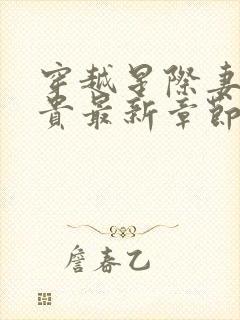 穿越星際妻
貴最新章節
詹春乙